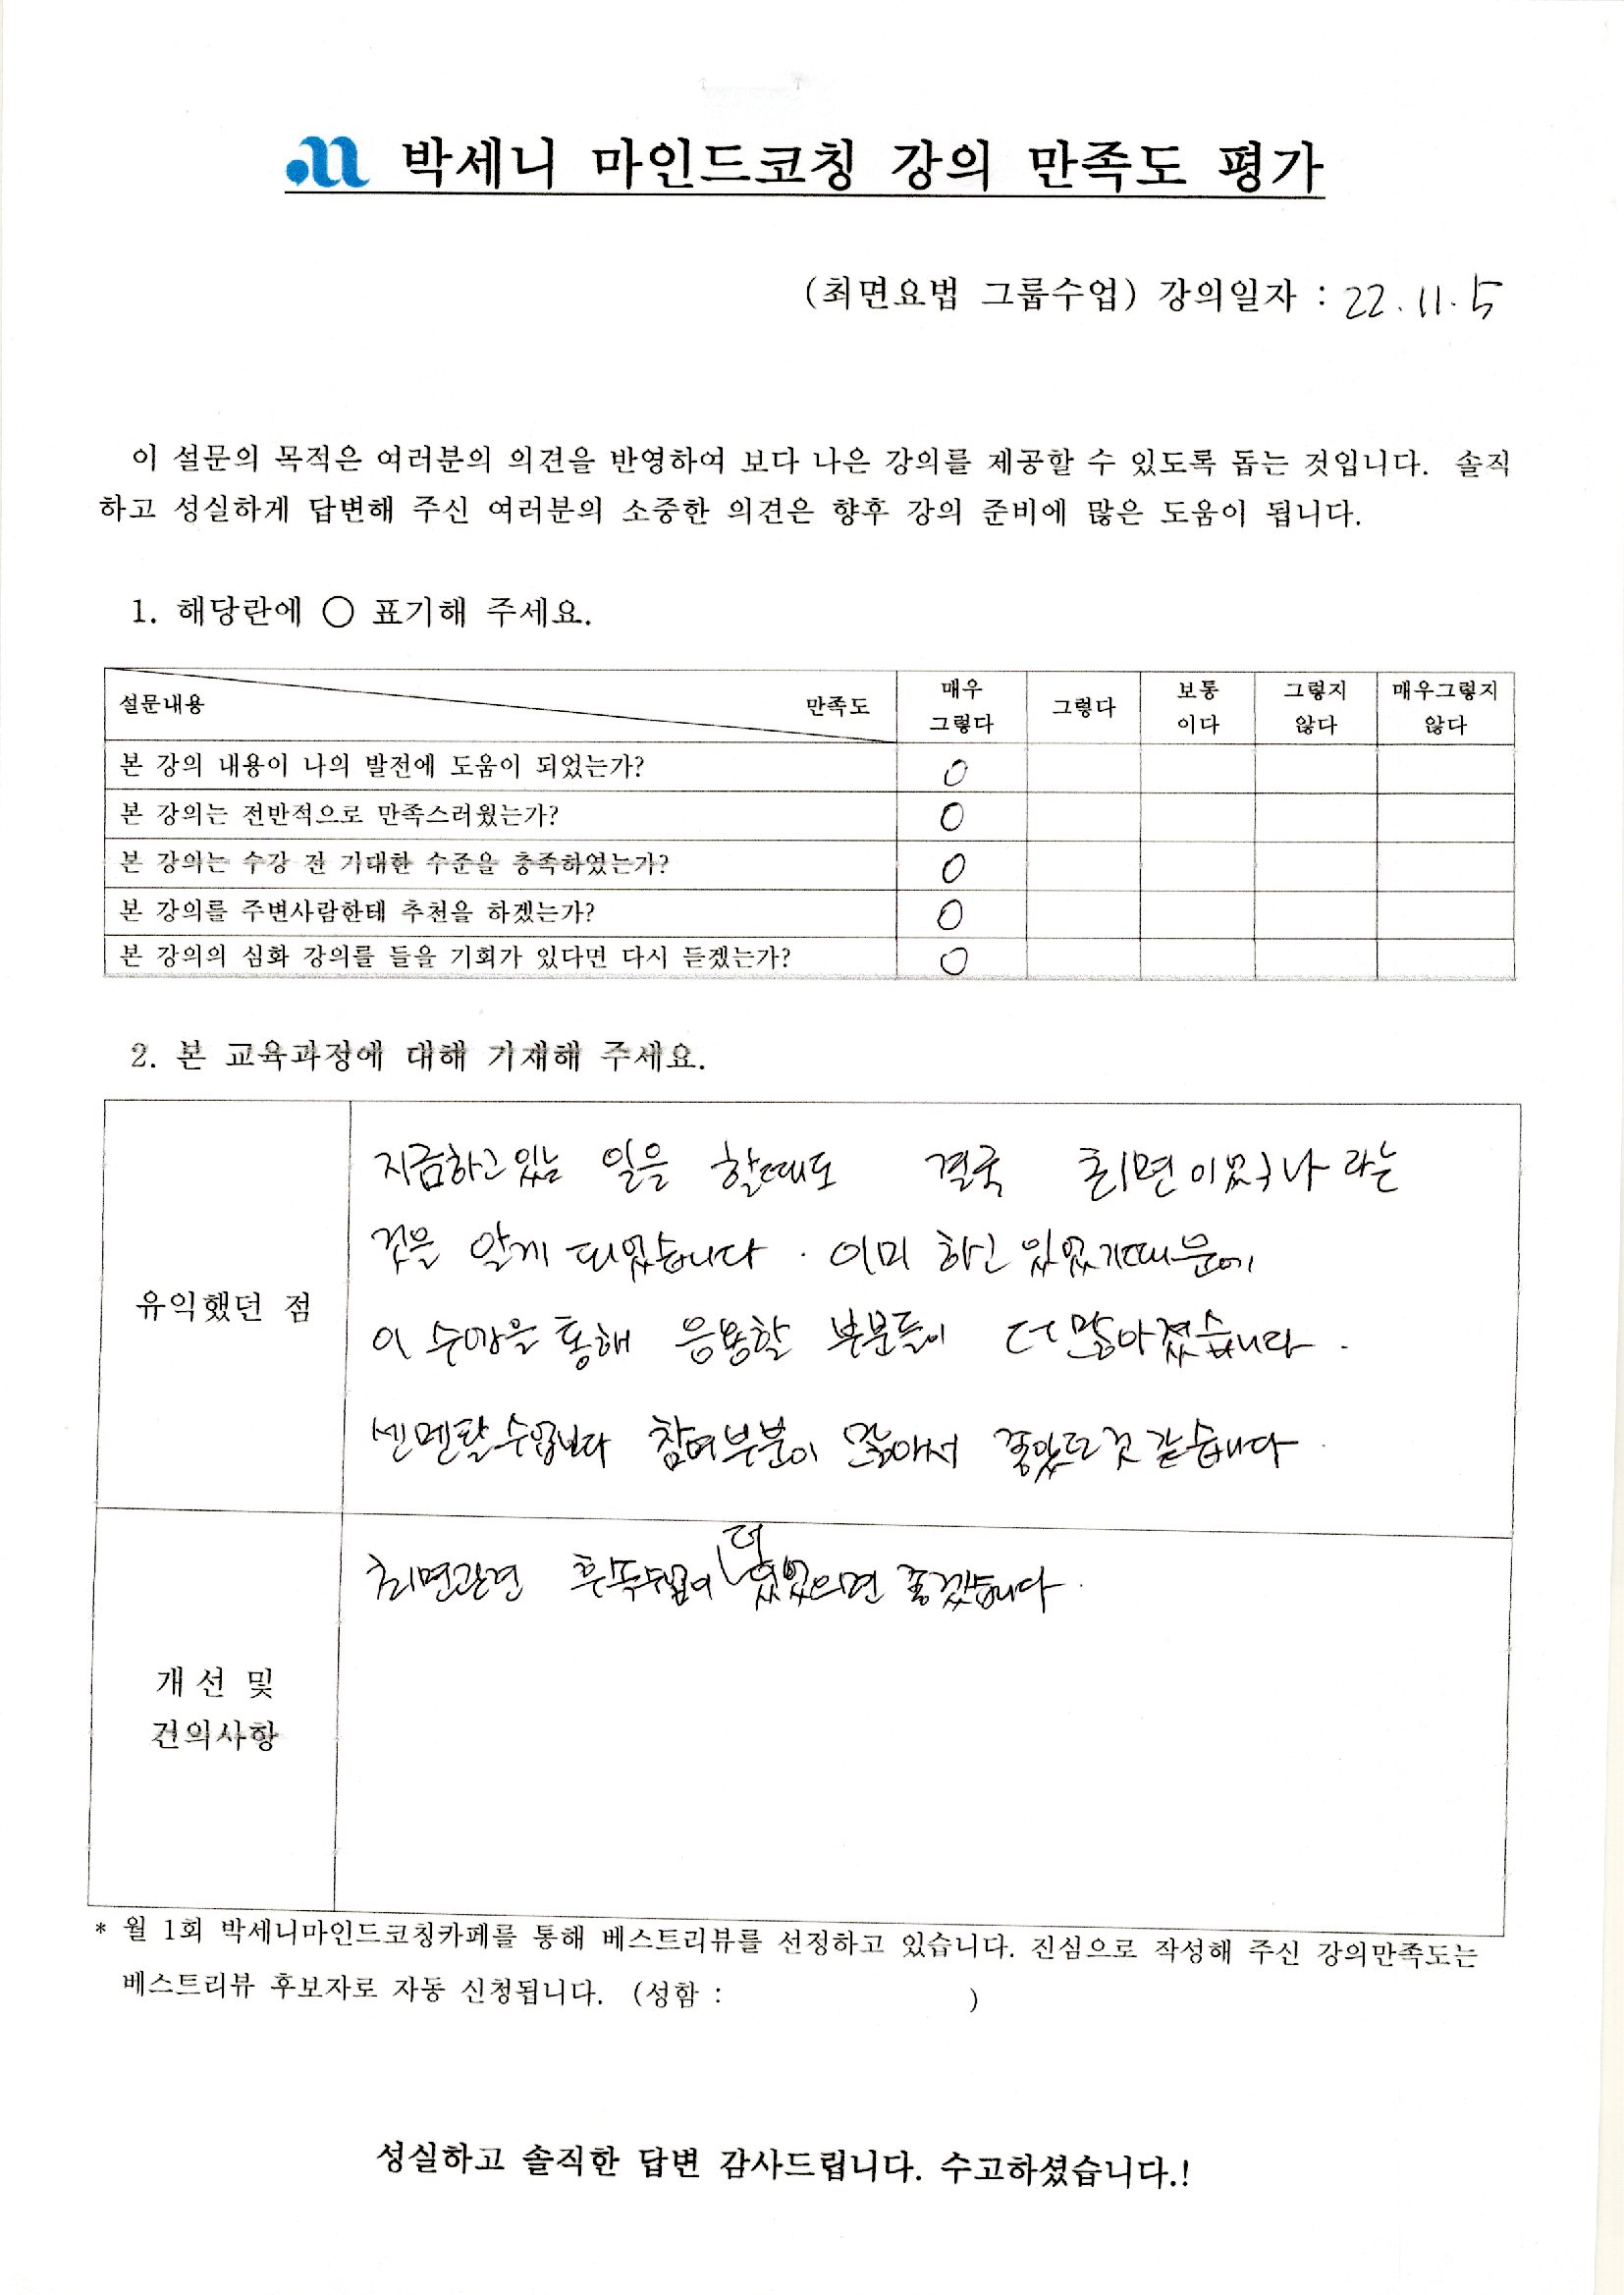 박세니 마인드코칭 강의 만족도 평가
(최면요법 그룹수업) 강의일자 : 22. 11. 5
이 설문의 목적은 여러분의 의견을 반영하여 보다 나은 강의를 제공할 수 있도록 돕는 것입니다. 솔직
하고 성실하게 답변해 주신 여러분의 소중한 의견은 향후 강의 준비에 많은 도움이 됩니다.
1. 해당란에 ○ 표기해 주세요.
설문내용 만족도 매우 그렇다 그렇다 보통 이다 그렇지 않다 매우그렇지 않다
본 강의 내용이 나의 발전에 도움이 되었는가? O
본 강의는 전반적으로 만족스러웠는가? O
본 강의는 수강 전 기대한 수준을 충족하였는가? O
본 강의를 주변사람한테 추천을 하겠는가? O
본 강의의 심화 강의를 들을 기회가 있다면 다시 듣겠는가? O
2. 본 교육과정에 대해 기재해 주세요.
유익했던 점
지금하고 있는 일을 할때도 결국 최면이었구나 라는
것을 알게 되었습니다. 이미 하고 있었기때문에
이 수강을 통해 응용할 부분들이 더 많아졌습니다.
센멘탈수업보다 참여부분이 많아서 좋았던 것 같습니다.
개선 및
건의사항
최면관련 후속수업이 더 있었으면 좋겠습니다.
* 월 1회 박세니마인드코칭카페를 통해 베스트리뷰를 선정하고 있습니다. 진심으로 작성해 주신 강의만족도는
베스트리뷰 후보자로 자동 신청됩니다. (성함 : )
성실하고 솔직한 답변 감사드립니다. 수고하셨습니다.!